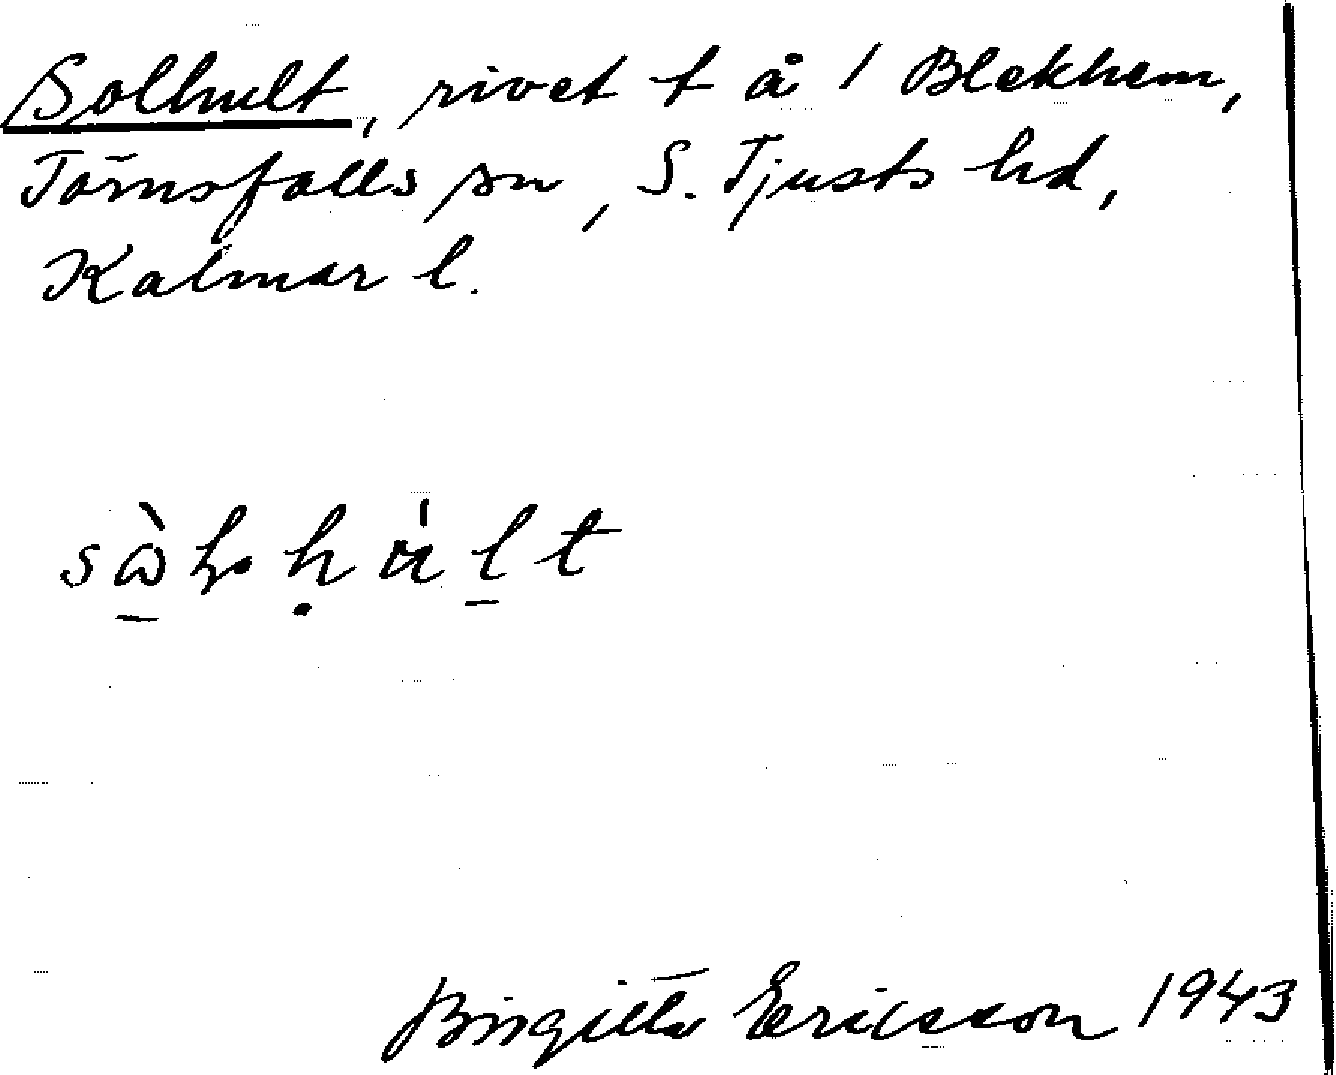 Solhult, rivet t å 1 Blekhem,
Törnsfalls sn, S. Tjusts hd,
Kalmar l.
Birgitta Ericsson 1943